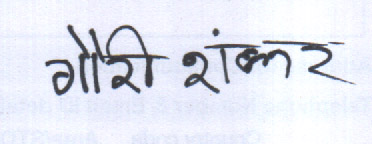 गौरी शंकर